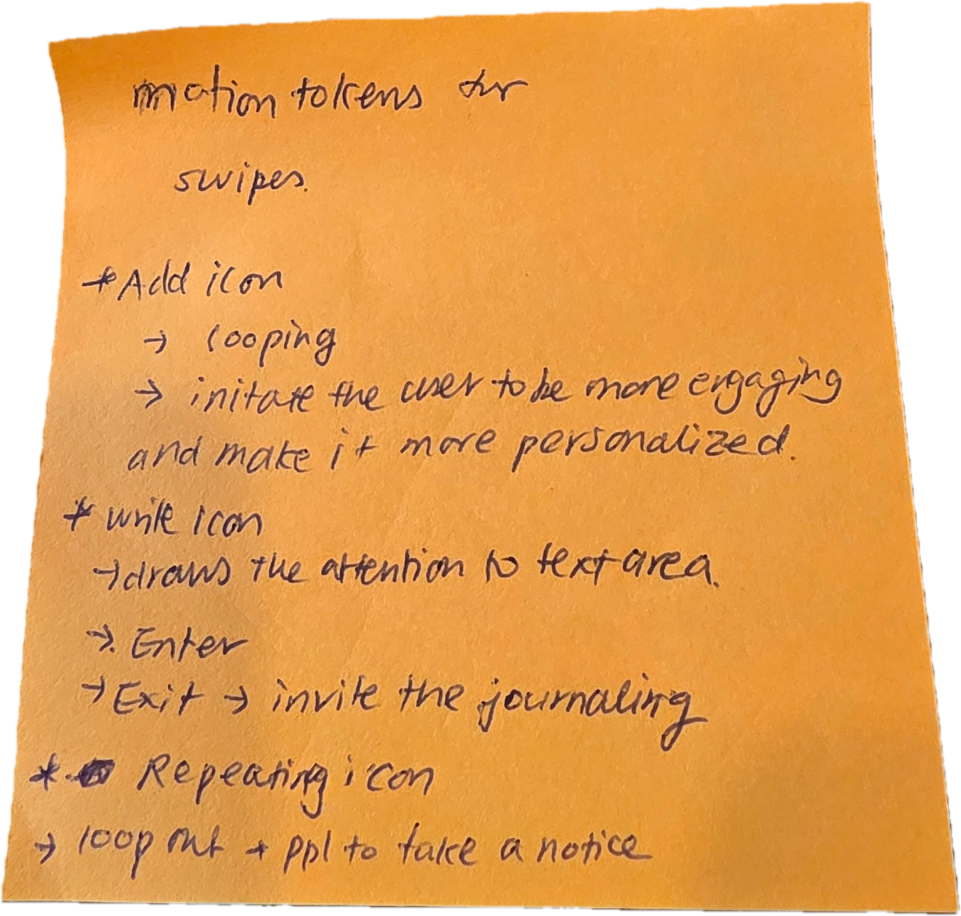 motion tokens for
swipes.
* Add icon
→ looping
→ initate the user to be more engaging
and make it more personalized.
* write icon
→ draws the attention to text area.
→ Enter
→ Exit → invite the journaling
* Repeating icon
→ loop out + ppl to take a notice